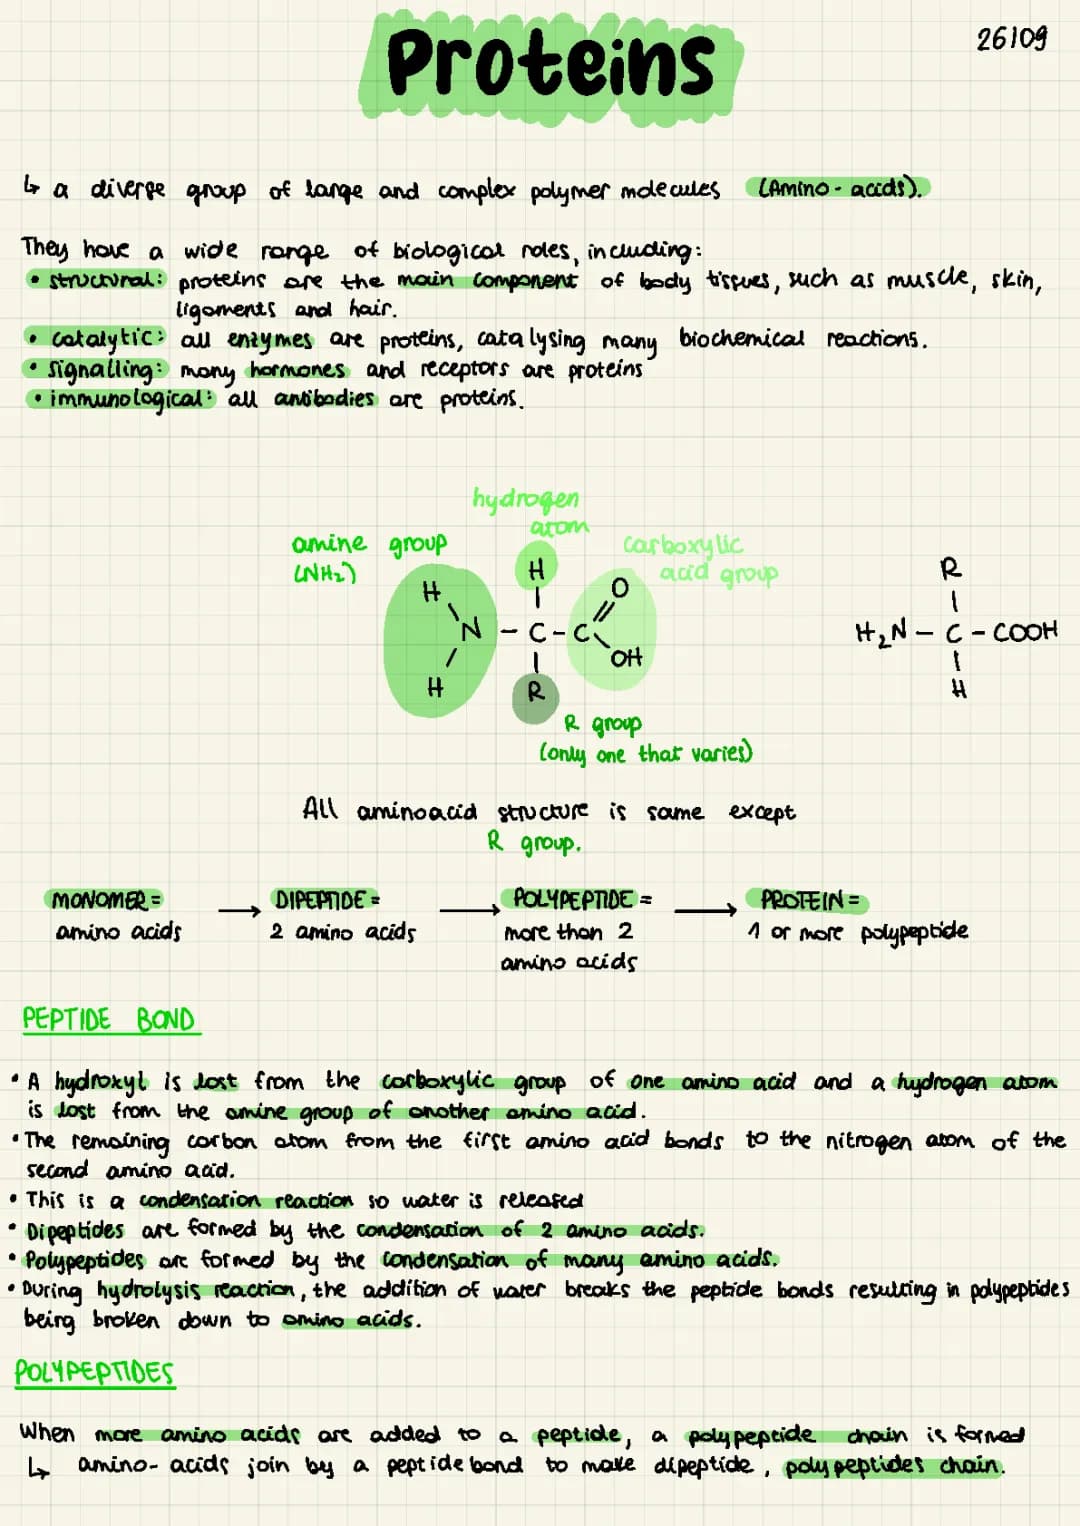 Proteins
26109
↳ a diverse group of large and complex polymer molecules (Amino-acids).
They have a wide range of biological roles, including:
• structural: proteins are the main component of body tissues, such as muscle, skin,
ligaments and hair.
• catalytic: all enzymes are proteins, catalysing many biochemical reactions.
• signalling: many hormones and receptors are proteins
• immunological: all antibodies are proteins.
hydrogen
atom
amine group
(NH₂)
carboxylic
acid group
H
H
O
N - C - C
OH
H
R
R
H₂N - C - COOH
H
R group
(only one that varies)
All aminoacid structure is same except
R group.
MONOMER = → DIPEPTIDE = → POLYPEPTIDE = → PROTEIN =
amino acids 2 amino acids more than 2 1 or more polypeptide
amino acids
PEPTIDE BOND
• A hydroxyl is lost from the carboxylic group of one amino acid and a hydrogen atom
is lost from the amine group of another amino acid.
• The remaining carbon atom from the first amino acid bonds to the nitrogen atom of the
second amino acid.
• This is a condensation reaction so water is released
• Dipeptides are formed by the condensation of 2 amino acids.
• Polypeptides are formed by the condensation of many amino acids.
• During hydrolysis reaction, the addition of water breaks the peptide bonds resulting in polypeptides
being broken down to amino acids.
POLYPEPTIDES
When more amino acids are added to a peptide, a polypeptide chain is formed
↳ amino-acids join by a peptide bond to make dipeptide, polypeptides chain.